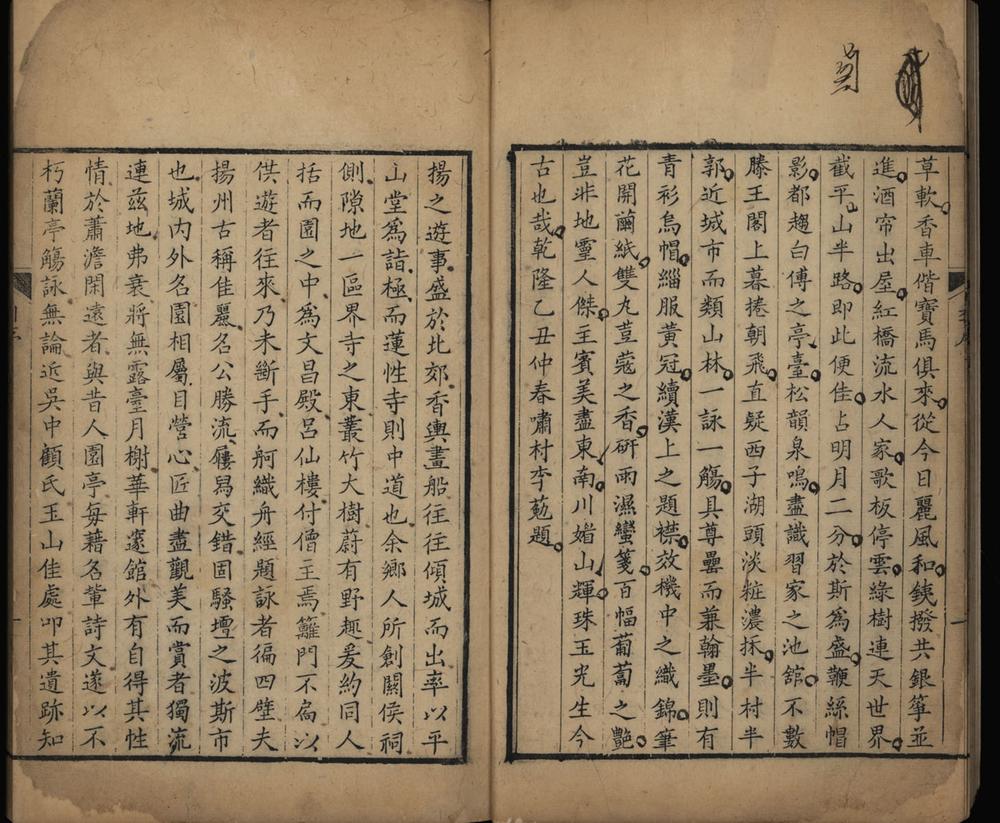 草軟香車偕寶馬俱來從今日麗風和銕撥共銀箏並
進酒帘出屋紅橋流水人家歌板停雲綠樹連天世界
截平山半路即此便佳占明月二分於斯爲盛鞭絲帽
影都趨白傅之亭臺松韻泉鳴盡識習家之池舘不數
滕王閣上暮捲朝飛直疑西子湖頭淡粧濃抹半村半
郭近城市而類山林一詠一觴具尊罍而兼翰墨則有
青衫烏帽緇服黃冠續漢上之題襟效機中之織錦筆
花開繭紙雙丸荳蔻之香硏雨濕蠻箋百幅葡萄之艷
豈非地靈人傑主賓美盡東南川媚山輝珠玉光生今
古也哉乾隆乙丑仲春嘯村李葂題
揚之遊事盛於北郊香輿畫船往往傾城而出率以平
山堂爲詣極而蓮性寺則中道也余鄉人所創關侯祠
側隙地一區界寺之東叢竹大樹蔚有野趣爰約同人
括而園之中爲文昌殿呂仙樓付僧主焉籬門不扃以
供遊者往來乃未斷手而舸織舟經題詠者徧四壁夫
揚州古稱佳麗名公勝流屨舄交錯固騷壇之波斯市
也城内外名園相屬目營心匠曲盡觀美而賞者獨流
連茲地弗衰將無露臺月榭華軒邃館外有自得其性
情於蕭澹閑遠者與昔人園亭每藉名輩詩文遂以不
朽蘭亭觴詠無論近吳中顧氏玉山佳處叩其遺跡知